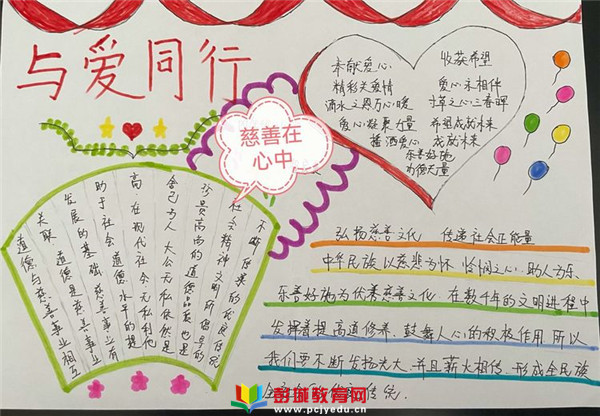 与爱同行
慈善在
心中
奉献爱心 收获希望
精彩关爱情 爱心永相伴
滴水之恩万心暖 寸草之心三春晖
爱心凝聚力量 希望成就未来
播洒爱心 成就未来
乐善好施
功德无量
道德与慈善事业相互
关联 道德是慈善事业
发展的基础 慈善事业有
助于社会道德水平的提
高 在现代社会无私利他
舍己为人 大公无私依然是
珍贵高尚的道德品质也是
社会精神文明所倡导的
不断传承的优良传统
弘扬慈善文化 传递社会正能量
中华民族以慈悲为怀 恻悯之心 助人为乐
乐善好施为优善慈善文化 在数千年的文明进程中
发挥着提高道德修养 鼓舞人心的积极作用 所以
我们要不断发扬光大 并且薪火相传 形成全民族
传统
彭城教育网
www.pcjyedu.cn